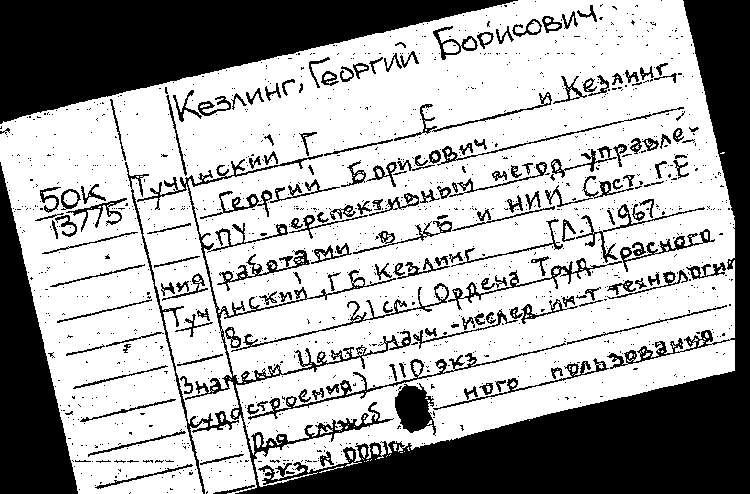 Кезлинг, Георгий Борисович.
50К
13775
Тучинский, Г Е и Кезлинг,
Георгий Борисович.
СПУ - перспективный метод управле-
ния работами в КБ и НИИ Сост. Г.Е.
Тучинский, Г.Б. Кезлинг. [Л.] 1967.
8с. 21 см. (Ордена Труд. Красного
Знамени Центр. науч.-исслед. ин-т технологии
судостроения.) 110 экз.
Для служебного пользования.
Экз. N